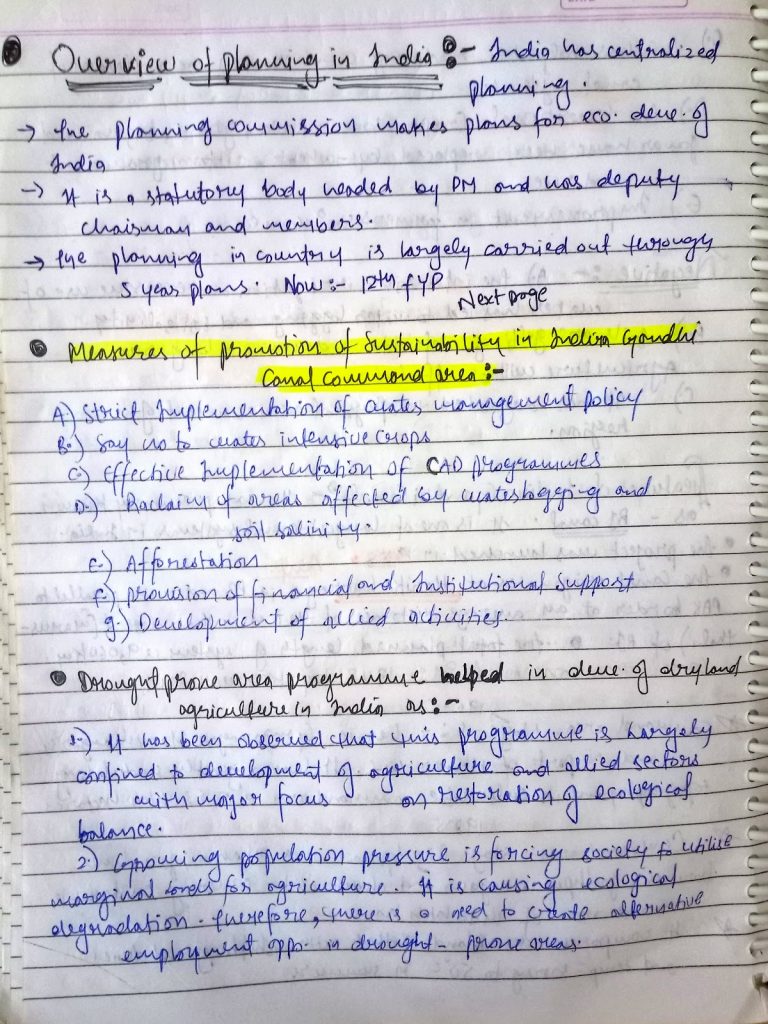 Overview of planning in India :- India has centralized
planning.
→ The planning commission makes plans for eco. deve. of
India
→ It is a statutory body headed by PM and has deputy
chairman and members.
→ The planning in country is largely carried out through
5 year plans. Now :- 12th FYP
Next page
Measures of promotion of Sustainability in Indira Gandhi
Canal Command area :-
A) Strict Implementation of water management policy
B.) Say no to water intensive crops
C.) Effective Implementation of CAD Programmes
D.) Raclaim of areas affected by waterlogging and
soil salinity.
E.) Afforestation
F.) provision of financial and Institutional Support
g.) Development of allied activities.
Drought prone area programme helped in deve. of dryland
agriculture in India as :-
1.) It has been observed that this programme is largely
confined to development of agriculture and allied sectors
with major focus on restoration of ecological
balance.
2.) Growing population pressure is forcing society to utilise
marginal lands for agriculture. It is causing ecological
degradation. Therefore, there is a need to create alternative
employment opp. in drought - prone areas.